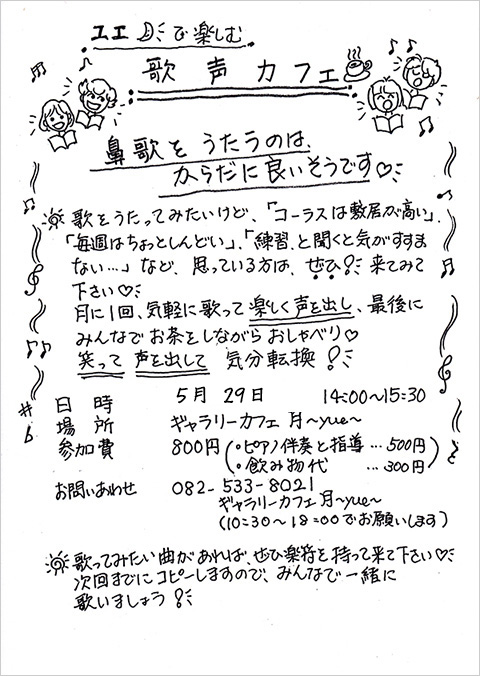 ユエ で楽しむ
歌声カフェ
鼻歌をうたうのは、
からだに良いそうです♡
歌をうたってみたいけど、「コーラスは敷居が高い」、
「毎週はちょっとしんどい」、「練習、と聞くと気がすすま
ない…」など、思っている方は、ぜひ!来てみて
下さい♡
月に1回、気軽に歌って楽しく声を出し、最後に
みんなでお茶をしながらおしゃべり♡
笑って 声を出して 気分転換!
日時 5月29日 14:00〜15:30
場所 ギャラリーカフェ 月〜yue〜
参加費 800円(・ピアノ伴奏と指導…500円
・飲み物代 …300円)
お問いあわせ 082-533-8021
ギャラリーカフェ月〜yue〜
(10:30〜18:00でお願いします)
歌ってみたい曲があれば、ぜひ楽符を持って来て下さい♡
次回までにコピーしますので、みんなで一緒に
歌いましょう!